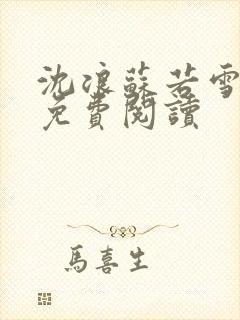 沈浪蘇若雪
免費閱讀
馬喜生